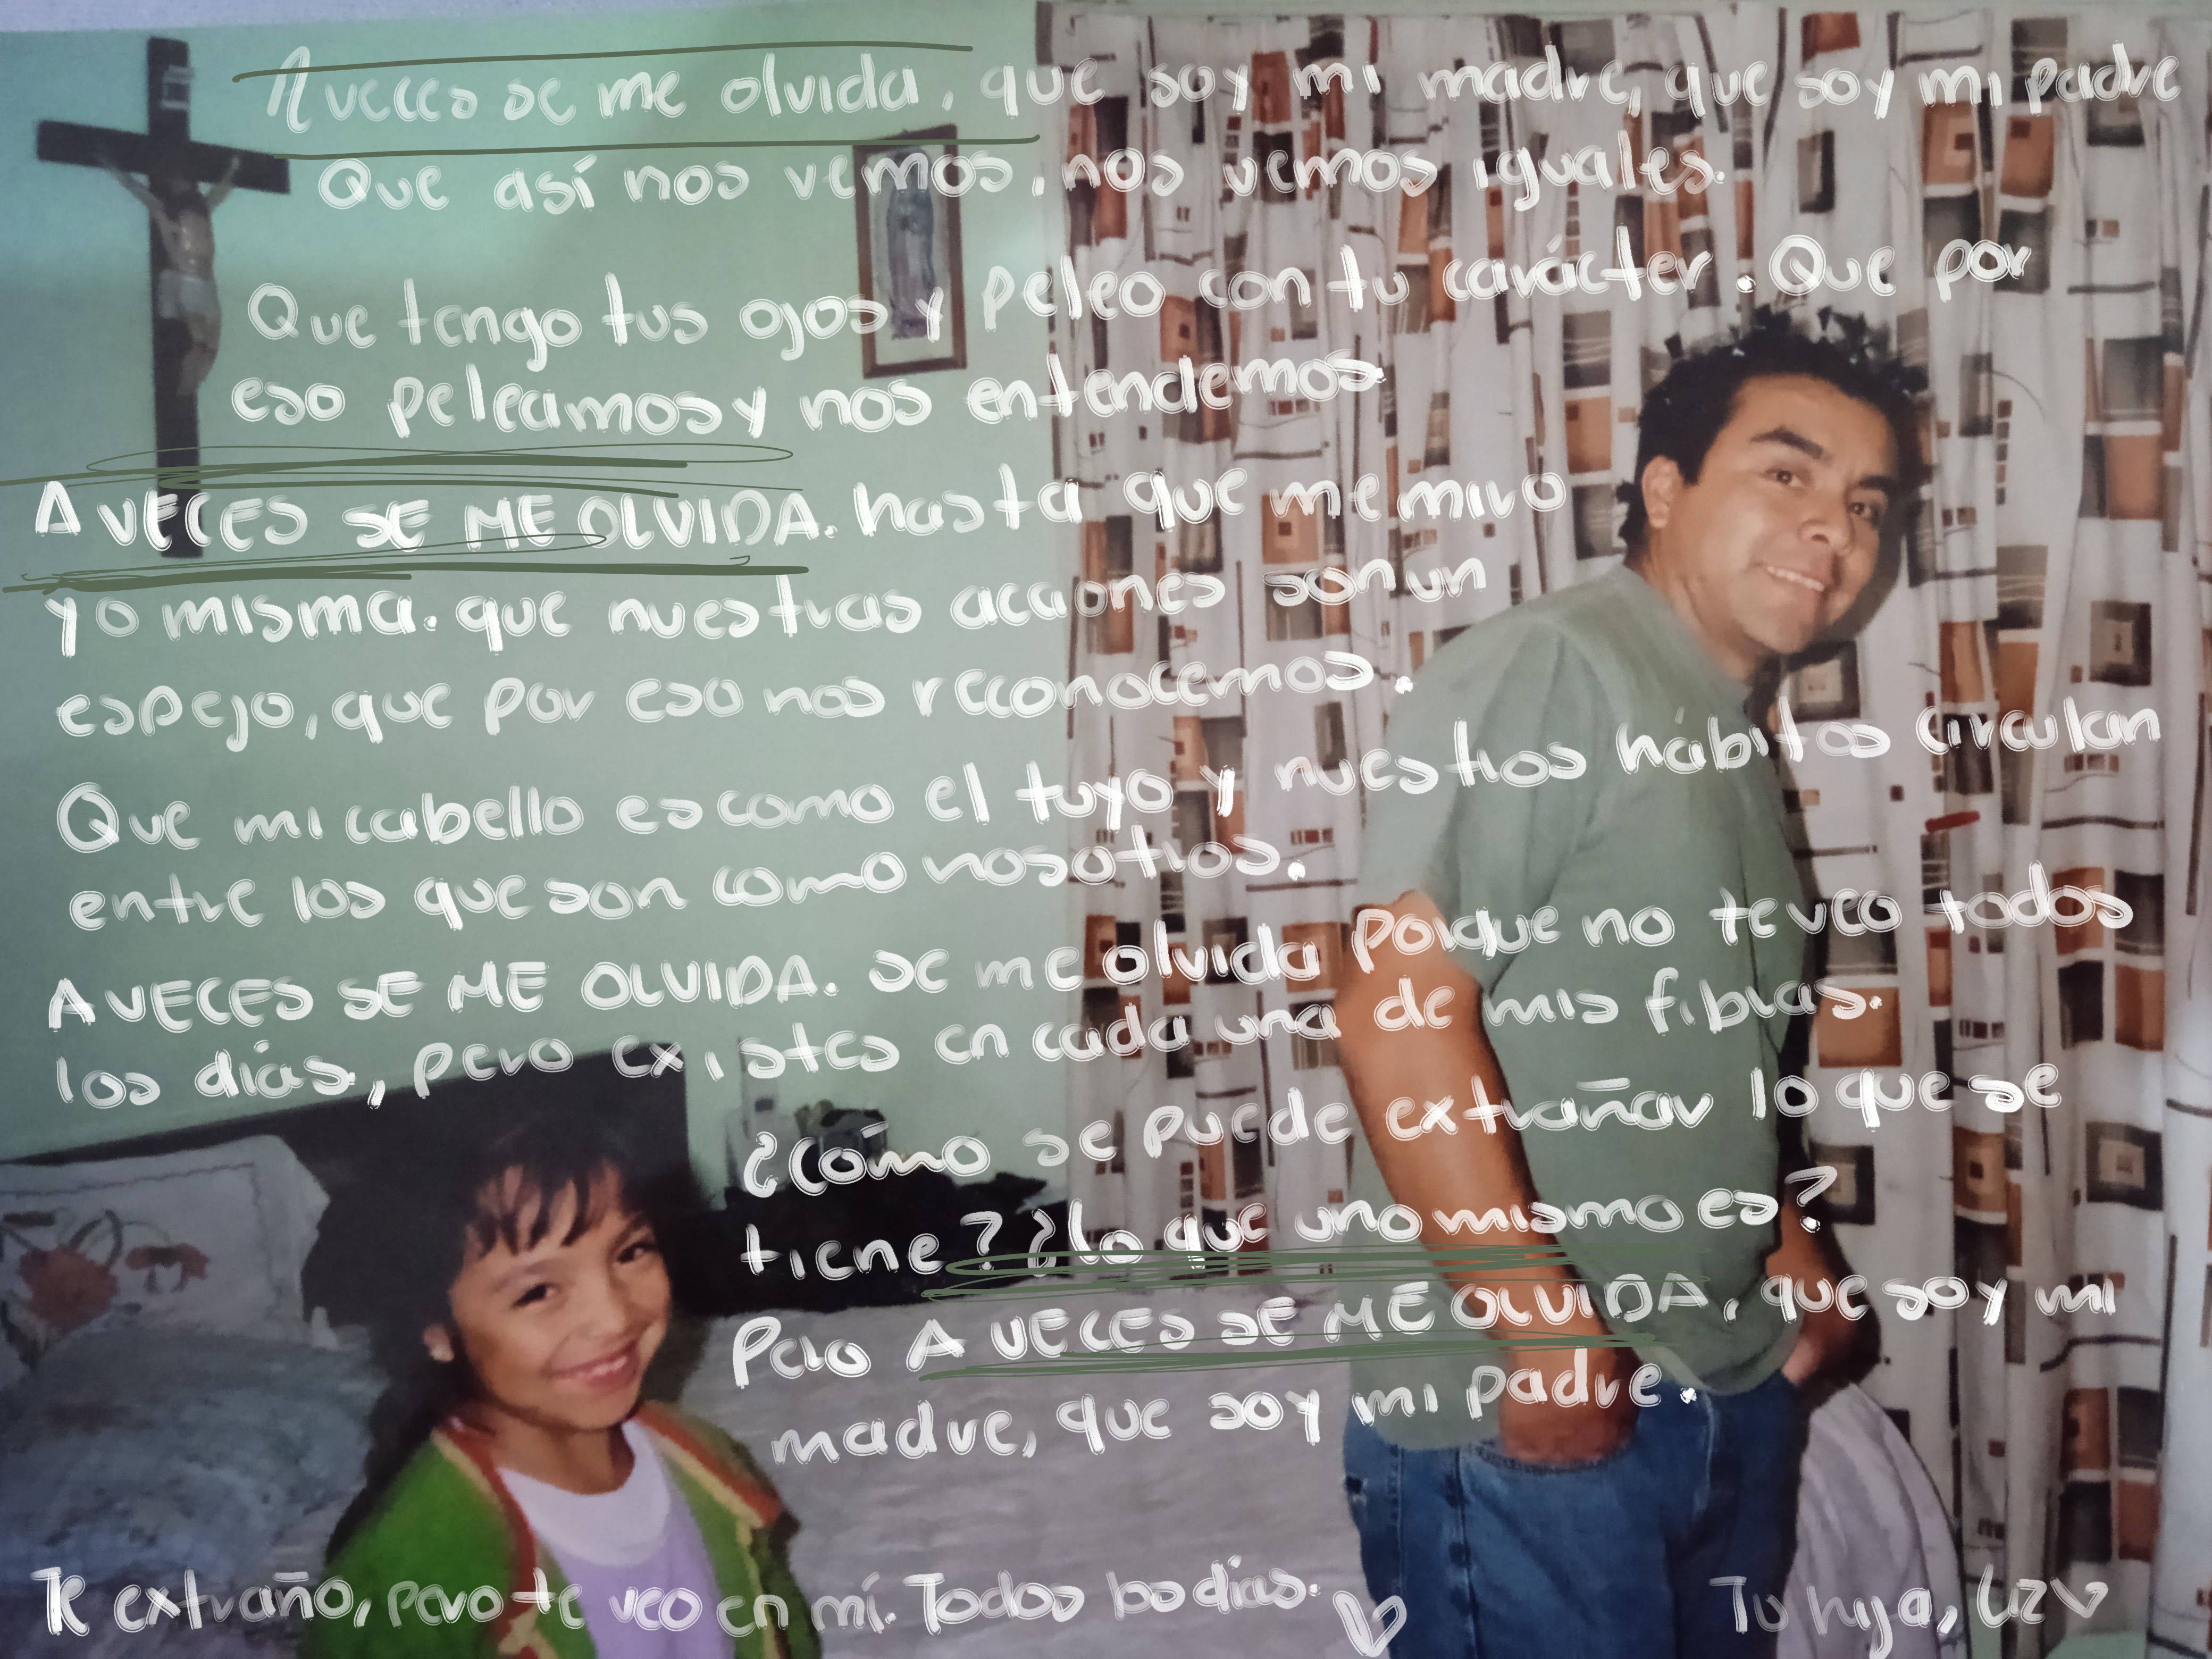 A veces se me olvida, que soy mi madre, que soy mi padre
Que así nos vemos, nos vemos iguales.
Que tengo tus ojos y peleo con tu carácter. Que por
eso peleamos y nos entendemos
A VECES SE ME OLVIDA. hasta que me miro
yo misma. que nuestras acciones son un
espejo, que por eso nos reconocemos.
Que mi cabello es como el tuyo y nuestros hábitos circulan
entre los que son como nosotros.
A VECES SE ME OLVIDA. se me olvida porque no te veo todos
los días, pero existes en cada una de mis fibras.
¿Cómo se puede extrañar lo que se
tiene? ¿lo que uno mismo es?
Pero A VECES SE ME OLVIDA, que soy mi
madre, que soy mi padre.
Te extraño, pero te veo en mí. Todos los días.
Tu hija, Liz